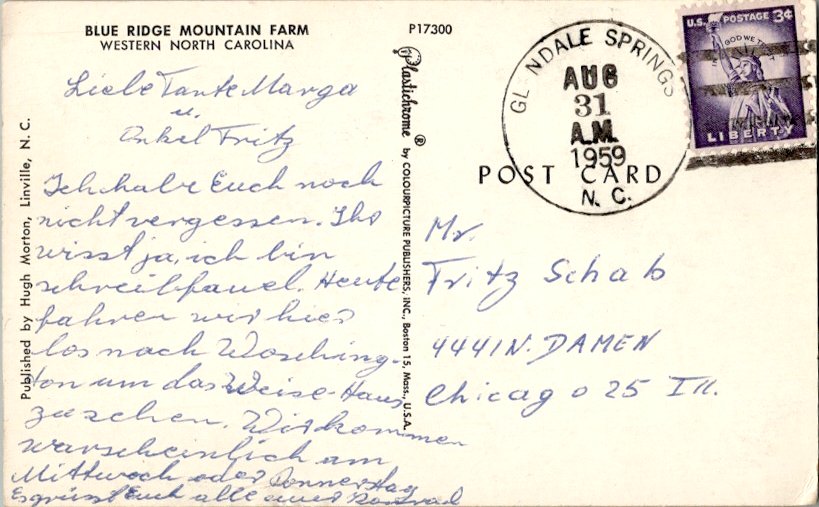 BLUE RIDGE MOUNTAIN FARM
WESTERN NORTH CAROLINA
Liebe Tante Marga
u.
Onkel Fritz
Ich habe Euch noch
nicht vergessen. Ihr
wisst ja, ich bin
schreibfauel. Heute
fahren wir hier
los nach Wasching-
ton um das Weise-Haus
zu sehen. Wir kommen
warscheinlich am
Mittwoch oder Donnerstag
Es grüsst Euch alle euer
Published by Hugh Morton, Linville, N. C.
P17300
Plastichrome ® by COLOURPICTURE PUBLISHERS, INC., Boston 15, Mass., U.S.A.
GLENDALE SPRINGS
AUG
31
A.M.
1959
N. C.
U.S. POSTAGE 3¢
IN GOD WE TRUST
LIBERTY
POST CARD
Mr.
Fritz Schab
4441 N. DAMEN
Chicago 25 Ill.